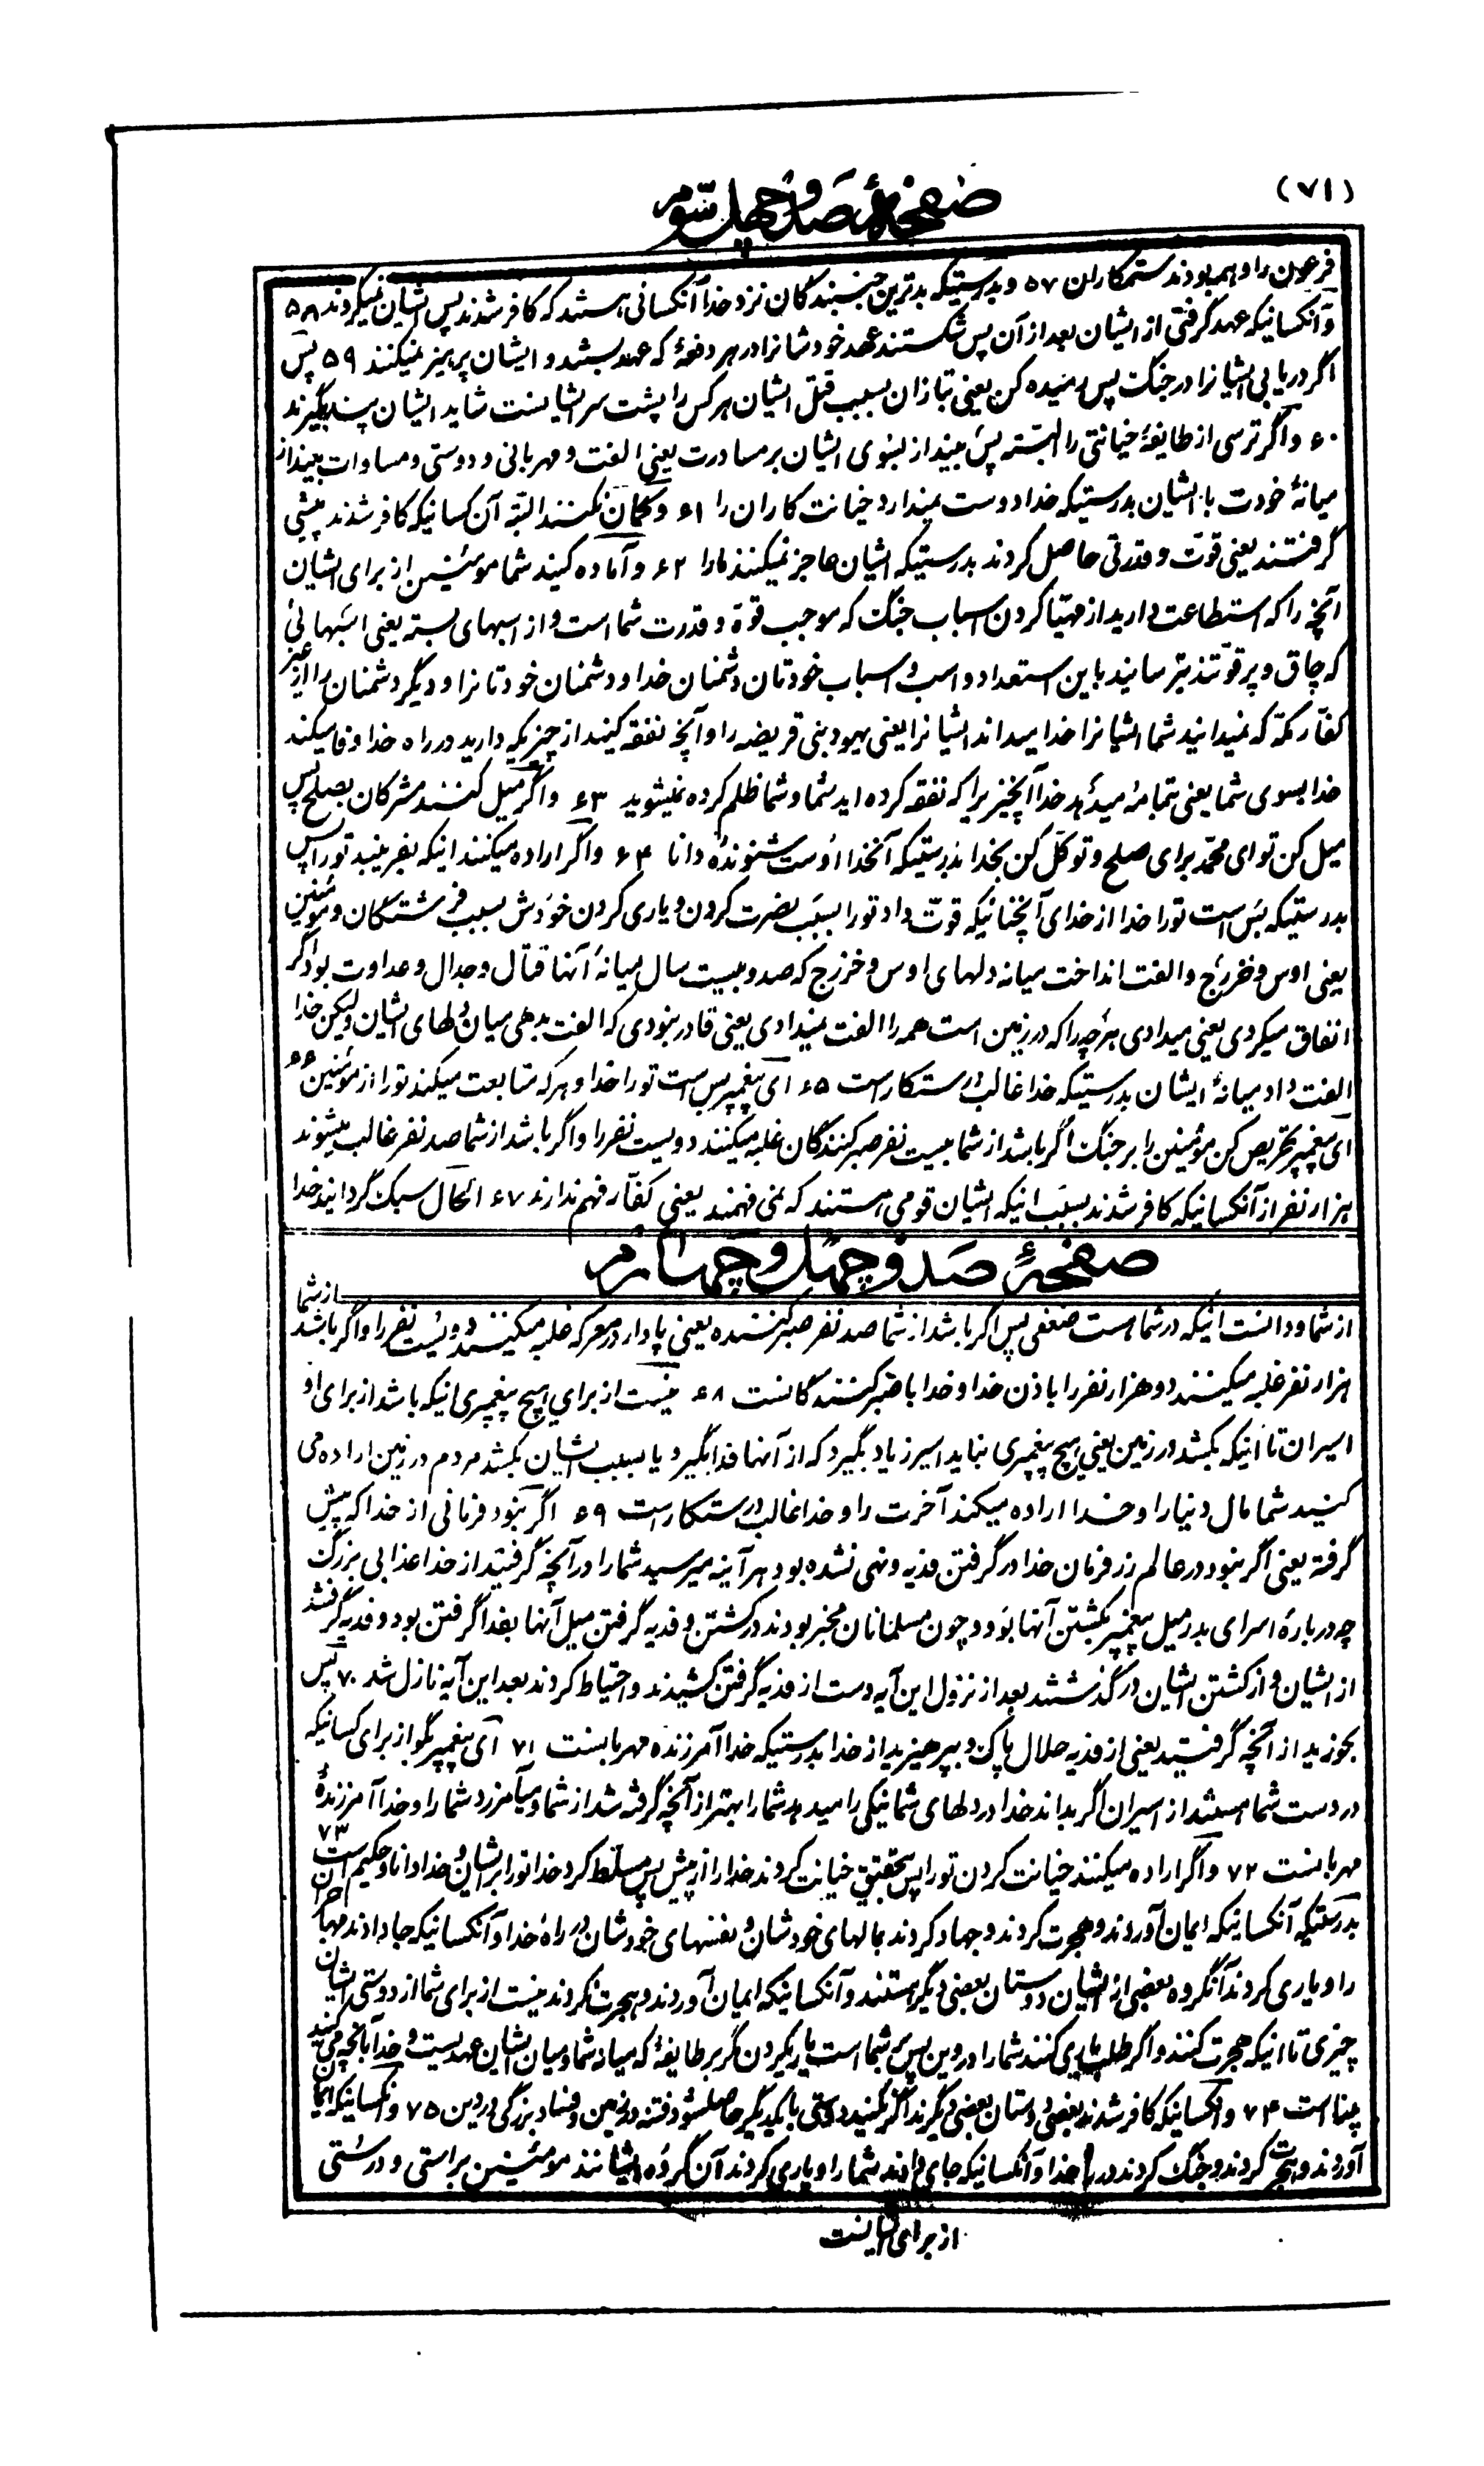 (۷۱)
صفحهٔ صد و چهل سوم
فرعون را و همه بودند ستمکاران ۵۷ و بدرستیکه بدترین جنبندگان نزد خدا آنکسانی هستند که کافر شدند پس ایشان نمیگروند ۵۸
و آنکسانیکه عهد گرفتی از ایشان بعد از آن پس شکستند عهد خودشانرا در هر دفعهٔ که عهد بستند و ایشان پرهیز نمیکنند ۵۹ پس
اگر دریابی ایشانرا در جنگ پس رمنیده کن یعنی بتازان بسبب قتل ایشان هر کس را پشت سر ایشانست شاید ایشان پند بگیرند
۶۰ و اگر ترسی از طایفهٔ خیانتی را البته پس بینداز بسوی ایشان بر مسادرت یعنی الفت و مهربانی و دوستی و مساوات بینداز
میانهٔ خودت با ایشان بدرستیکه خدا دوست نمیدارد خیانت کاران را ۶۱ و گمان نکنند البته آن کسانیکه کافر شدند پیشی
گرفتند یعنی قوت و قدرتی حاصل کردند بدرستیکه ایشان عاجز نمیکنند مارا ۶۲ و آماده کنید شما مؤمنین از برای ایشان
آنچه را که استطاعت دارید از مهیا کردن اسباب جنگ که موجب قوة و قدرت شما است و از اسبهای بسته یعنی اسبهائی
که چاق و پر قوتند بترسانید باین استعداد و اسب و اسباب خودتان دشمنان خدا و دشمنان خودتانرا و دیگر دشمنان را از غیر
کفار مکه که نمیدانید شما ایشانرا خدا میداند ایشانرا یعنی یهود بنی قریضه را و آنچه نفقه کنید از چیزیکه دارید در راه خدا وفا میکند
خدا بسوی شما یعنی بتمامه میدهد خدا آنچیزیرا که نفقه کرده اید شما و شما ظلم کرده نمیشوید ۶۳ و اگر میل کنند مشرکان بصلح پس
میل کن تو ای محمد برای صلح و توکل کن بخدا بدرستیکه آنخدا اوست شنوندهٔ دانا ۶۴ و اگر اراده میکنند اینکه بفریبند تو را پس
بدرستیکه بس است تو را خدا از خدای آنچنانیکه قوت داد تو را بسبب نصرت کردن و یاری کردن خودش بسبب فرشتگان و مؤمنین
یعنی اوس و خزرج و الفت انداخت میانه دلهای اوس و خزرج که صد و بیست سال میانهٔ آنها قتال و جدال و عداوت بود اگر
انفاق میکردی یعنی میدادی هر چه را که در زمین است همه را الفت نمیدادی یعنی قادر نبودی که الفت بدهی میان دلهای ایشان ولیکن خدا
الفت داد میانهٔ ایشان بدرستیکه خدا غالب درستکار است ۶۵ ای پیغمبر بس است تو را خدا و هر که متابعت میکند تو را از مؤمنین ۶۶
ای پیغمبر تحریص کن مؤمنین را بر جنگ اگر باشد از شما بیست نفر صبر کنندگان غلبه میکنند دویست نفر را و اگر باشد از شما صد نفر غالب میشوند
هزار نفر از آنکسانیکه کافر شدند بسبب اینکه ایشان قومی هستند که نمی فهمند یعنی کفار فهم ندارند ۶۷ الحال سبک گردانید خدا
صفحهٔ صد و چهل و چهارم
از شما و دانست اینکه در شما هست ضعفی پس اگر باشد از شما صد نفر صبر کننده یعنی پا دار در معرکه غلبه میکنند دویست نفر را و اگر باشد از شما
هزار نفر غلبه میکنند دو هزار نفر را باذن خدا و خدا با صبر کنندگانست ۶۸ نیست از برای هیچ پیغمبری اینکه باشد از برای او
اسیران تا اینکه بکشد در زمین یعنی هیچ پیغمبری نباید اسیر زیاد بگیرد که از آنها فدا بگیرد یا بسبب ایشان بکشد مردم در زمین اراده می
کنید شما مال دنیا را و خدا اراده میکند آخرت را و خدا غالب درستکار است ۶۹ اگر نبود فرمانی از خدا که پیش
گرفته یعنی اگر نبود در عالم زر فرمان خدا در گرفتن فدیه و نهی نشده بود هر آینه میرسید شما را در آنچه گرفتید از خدا عذابی بزرگ
چه در بارهٔ اسرای بدر میل پیغمبر بکشتن آنها بود و چون مسلمانان مخبر بودند در کشتن و فدیه گرفتن میل آنها بفدا گرفتن بود و فدیه گرفتند
از ایشان و از کشتن ایشان در گذشتند بعد از نزول این آیه دست از فدیه گرفتن کشیدند و احتیاط کردند بعد این آیه نازل شد ۷۰ پس
بخورید از آنچه گرفتید یعنی از فدیه حلال پاک و بپرهیزید از خدا بدرستیکه خدا آمرزنده مهربانست ۷۱ ای پیغمبر بگو از برای کسانیکه
در دست شما هستند از اسیران اگر بداند خدا در دلهای شما نیکی را میدهد شما را بهتر از آنچه گرفته شد از شما و میآمرزد شما را و خدا آمرزندهٔ
مهربانست ۷۲ و اگر اراده میکنند خیانت کردن تو را پس بتحقیق خیانت کردند خدا را از پیش پس مسلط کرد خدا تو را بر ایشان و خدا دانا و حکیم است ۷۳
بدرستیکه آنکسانیکه ایمان آوردند و هجرت کردند و جهاد کردند بمالهای خودشان و بنفسهای خودشان در راه خدا و آنکسانیکه جا دادند مهاجران
را و یاری کردند آنگروه بعضی از ایشان دوستان بعضی دیگر هستند و آنکسانیکه ایمان آوردند و هجرت نکردند نیست از برای شما از دوستی ایشان
چیزی تا اینکه هجرت کنند و اگر طلب یاری کنند شما را در دین پس بر شما است یاریکردن مگر بر طایفهٔ که میانه شما و میان ایشان عهدیست و خدا بآنچه می کنید
بینا است ۷۴ و آنکسانیکه کافر شدند بعضی دوستان بعضی دیگرند اگر نکنید دوستی با یکدیگر حاصل شود فتنه در زمین و فساد بزرگی در دین ۷۵ و آنکسانیکه ایمان
آوردند و هجرت کردند و جنگ کردند در راه خدا و آنکسانیکه جای دادند شما را و یاری کردند آن گروه ایشانند مؤمنین براستی و درستی
از برای ایشانست